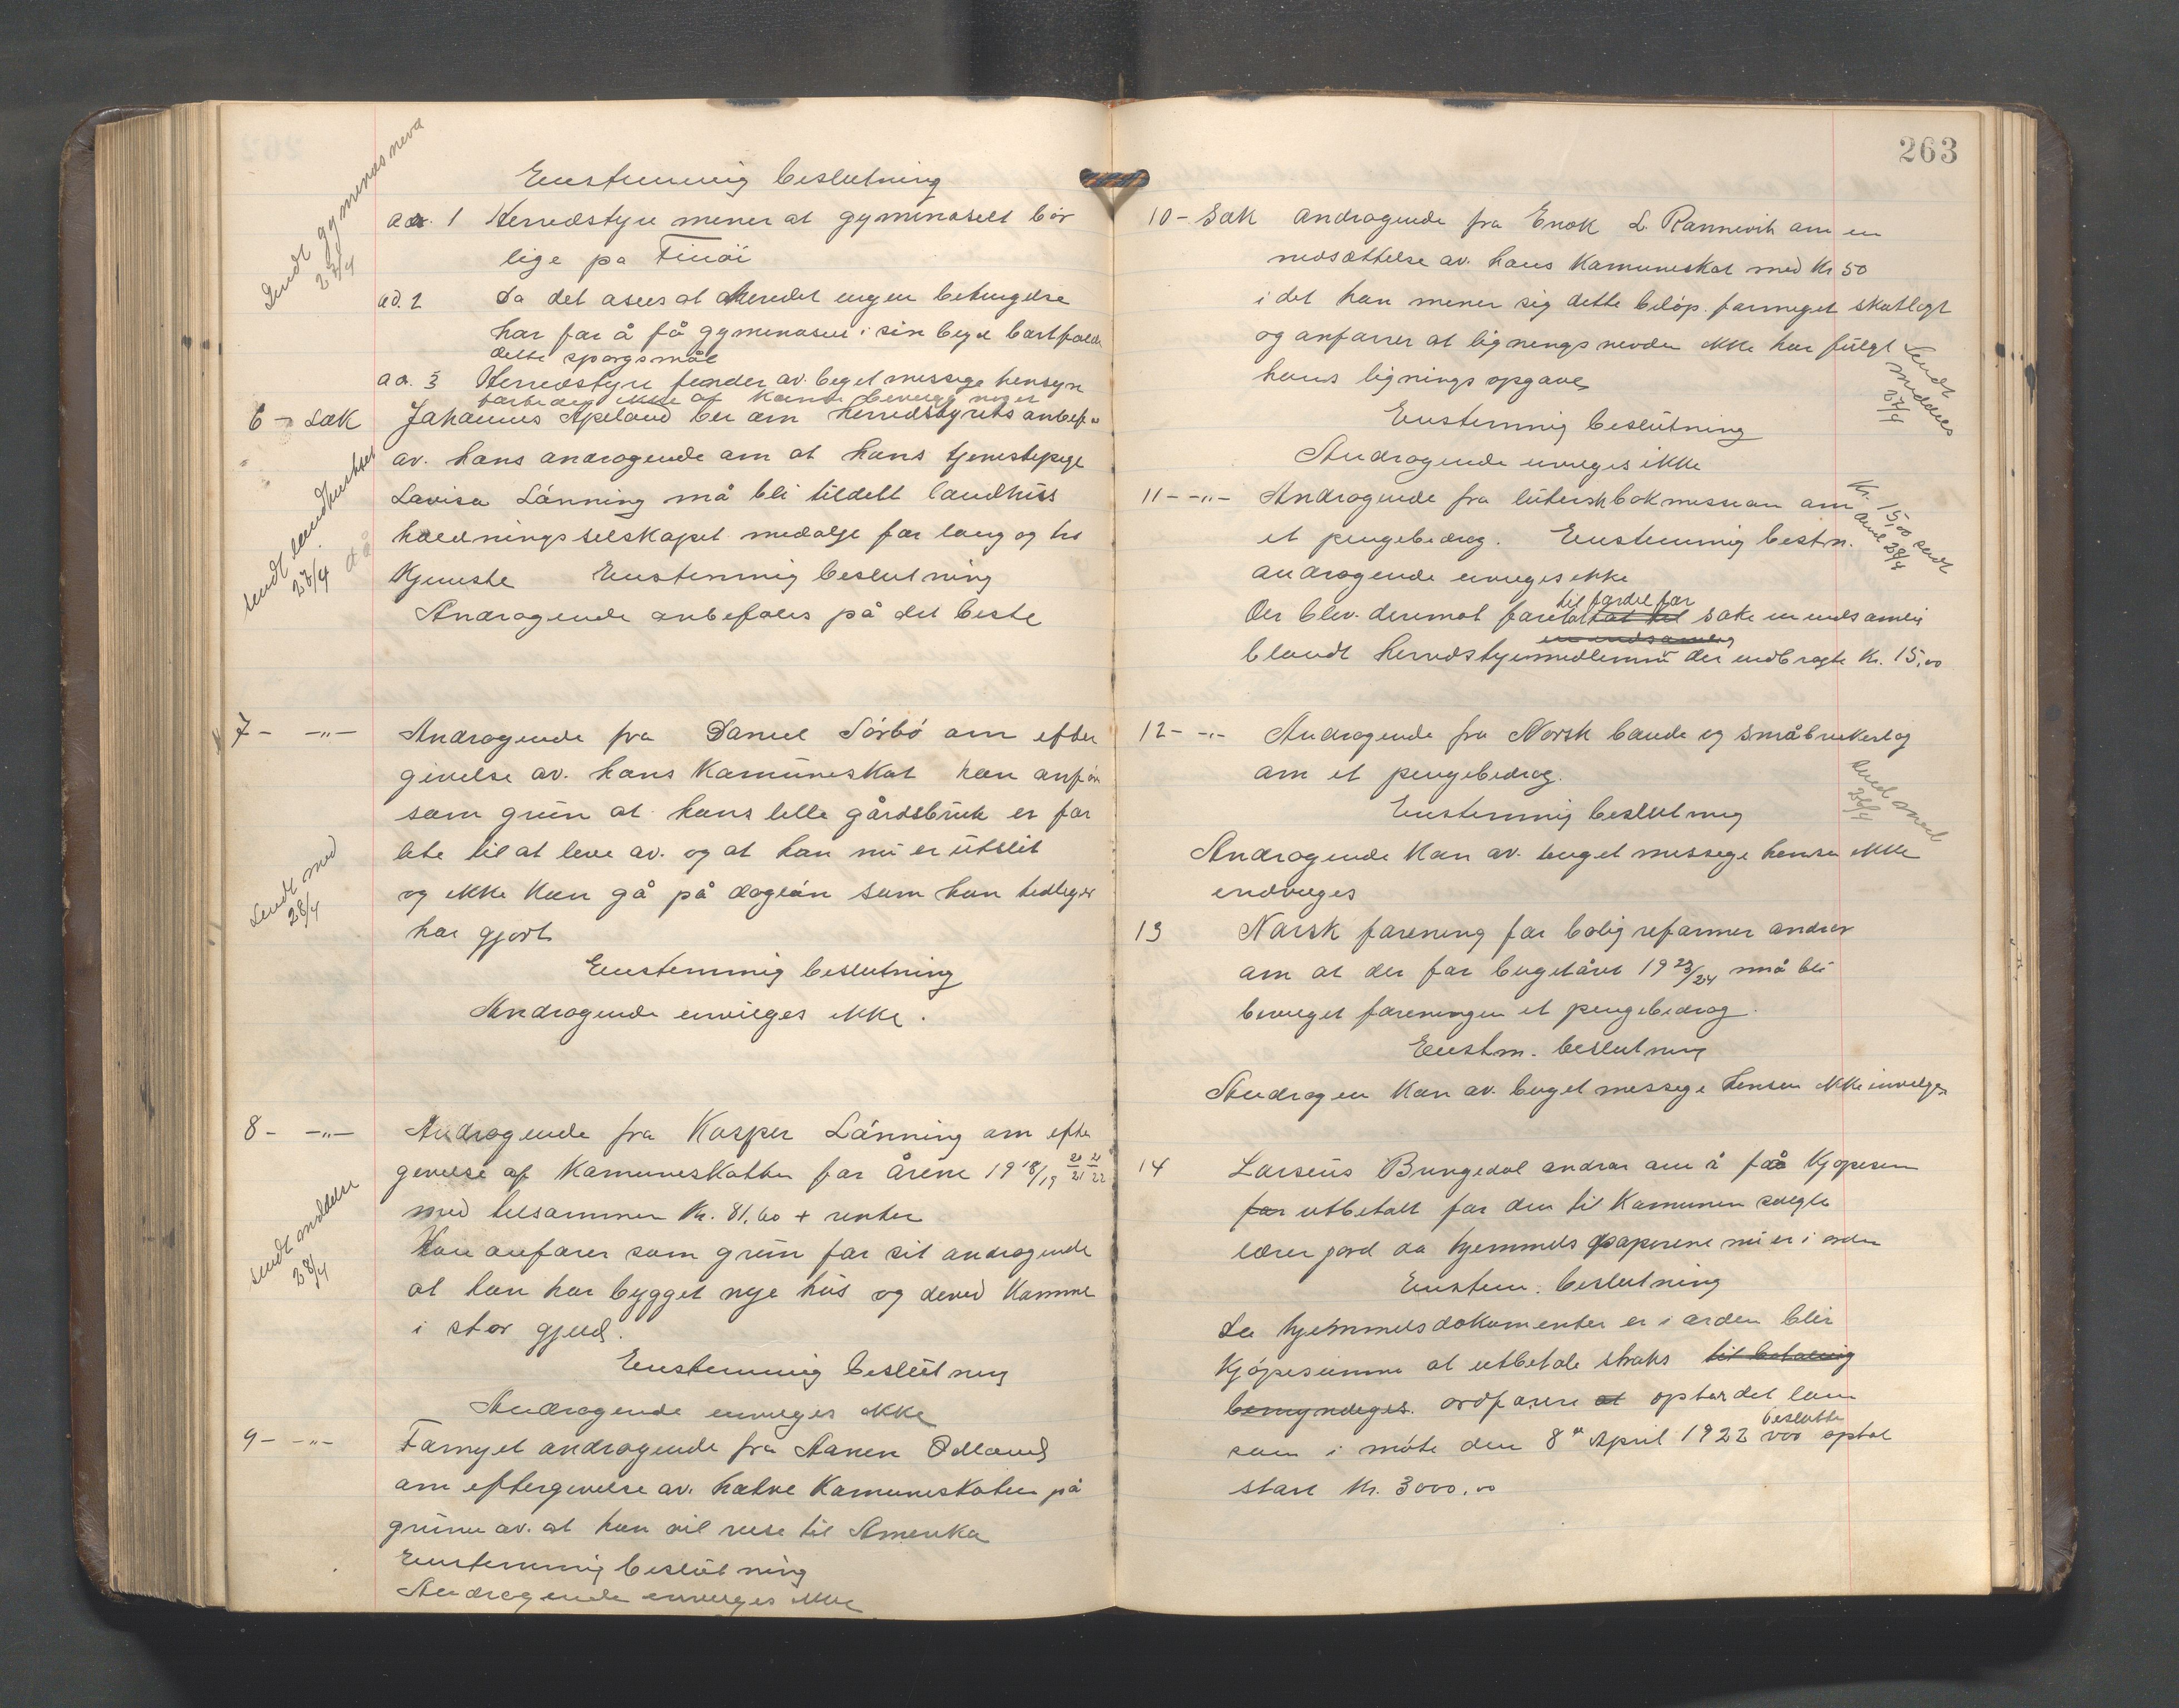 Sendt gymnasneva
23/4
Enstemmig beslutning
ad. 1 Herredstyre mener at gyminaset bör
lige på Finöi
ad. 2 Da det ases at Aheredet ingen betingelse
har for å få gyminaset i sin bygd bortfalder
dette sporgsmål
ad. 3 Herredstyre finder av. buget messige hensyn
ikke at kunde bevilge noget
6 - Sak Johannes Apeland ber om herredstyrets anbef.
av. hans androgende om at hans tjenestepige
Lovisa Lånning må bli tildelt landhus
holdningsselskapet medalje for lang og tro
tjeneste Enstemmig beslutning
Androgende anbefales på det beste
Sendt landhushset
23/4
7 - -"- Androgende fra Daniel Sörbö om efter
givelse av. hans Kamuneskat han anför
som grun at hans lille gårdsbruk er for
lite til at leve av. og at han nu er utslit
og ikke kan gå på daglön som han tidliger
har gjort
Sendt med
28/4
Enstemmig beslutning
Androgende envilges ikke.
8 - -"- Androgende fra Kasper Lånning om efter
gevelse af Kamuneskatten for årene 1918/19 20/21 21/22
med tilsammen Kr. 81,60 + renter
Han anfører som grun for sit androgende
at han har bygget nye hus og derved kommet
i stor gjeld.
Sendt meddelse
28/4
Enstemmig beslutning
Androgende envilges ikke
9 - -"- Fornyet androgende fra Aanen Ødland
om eftergivelse av. halve Kamuneskaten på
grun av. at han vil reise til Amerika
Enstemmig beslutning
Androgende envilges ikke
263
10 - Sak androgende fra Enok L. Rannevik om en
nedsættelse av. hans Kamuneskat med Kr 50
i det han mener sig dette belöp. formeget skatlagt
og anfører at lignings nevden ikke har fulgt
hans lignings opgave
Sendt meddels
27/4
Enstemmig beslutning
Androgende envilges ikke
11 - -"- Androgende fra lutersk bokmission om
et pengebidrag. Enstemmig bestm.
androgende envilges ikke
Kr. 15,00 sendt
28/4
til fordel for
Der blev. derimot foretat tat til sake en indsamli
en indsamling
blandt herredstyremedlemmer der indbragte Kr. 15,00
12 - -"- Androgende fra Norsk bonde og småbrukerlag
om et pengebidrag.
Enstemmig beslutning
Send med
28/4
Androgende kan av. buget messige hensyn ikke
endvilges
13 Norsk forening for bolig reformer andror
om at der for bugetåret 1923/24 må bli
beviget foreningen et pengebidrag.
Enstm. beslutning
Androgen kan av. buget messige hensyn ikke invilges
14 Larseus Bringedal andror om å få Kjøpesum
for utbetalt for den til Kamunen solgte
lærer jord da hjemmels paperene nu er i orden
Enstem. beslutning
Da hjemmelsdokumenter er i orden blir
Kjöpesumme at utbetale straks til betaling
bemyndeges. ordfører at optar det laan
beslutte
som i möte den 8de April 1922 var optat
stort Kr. 3000,00